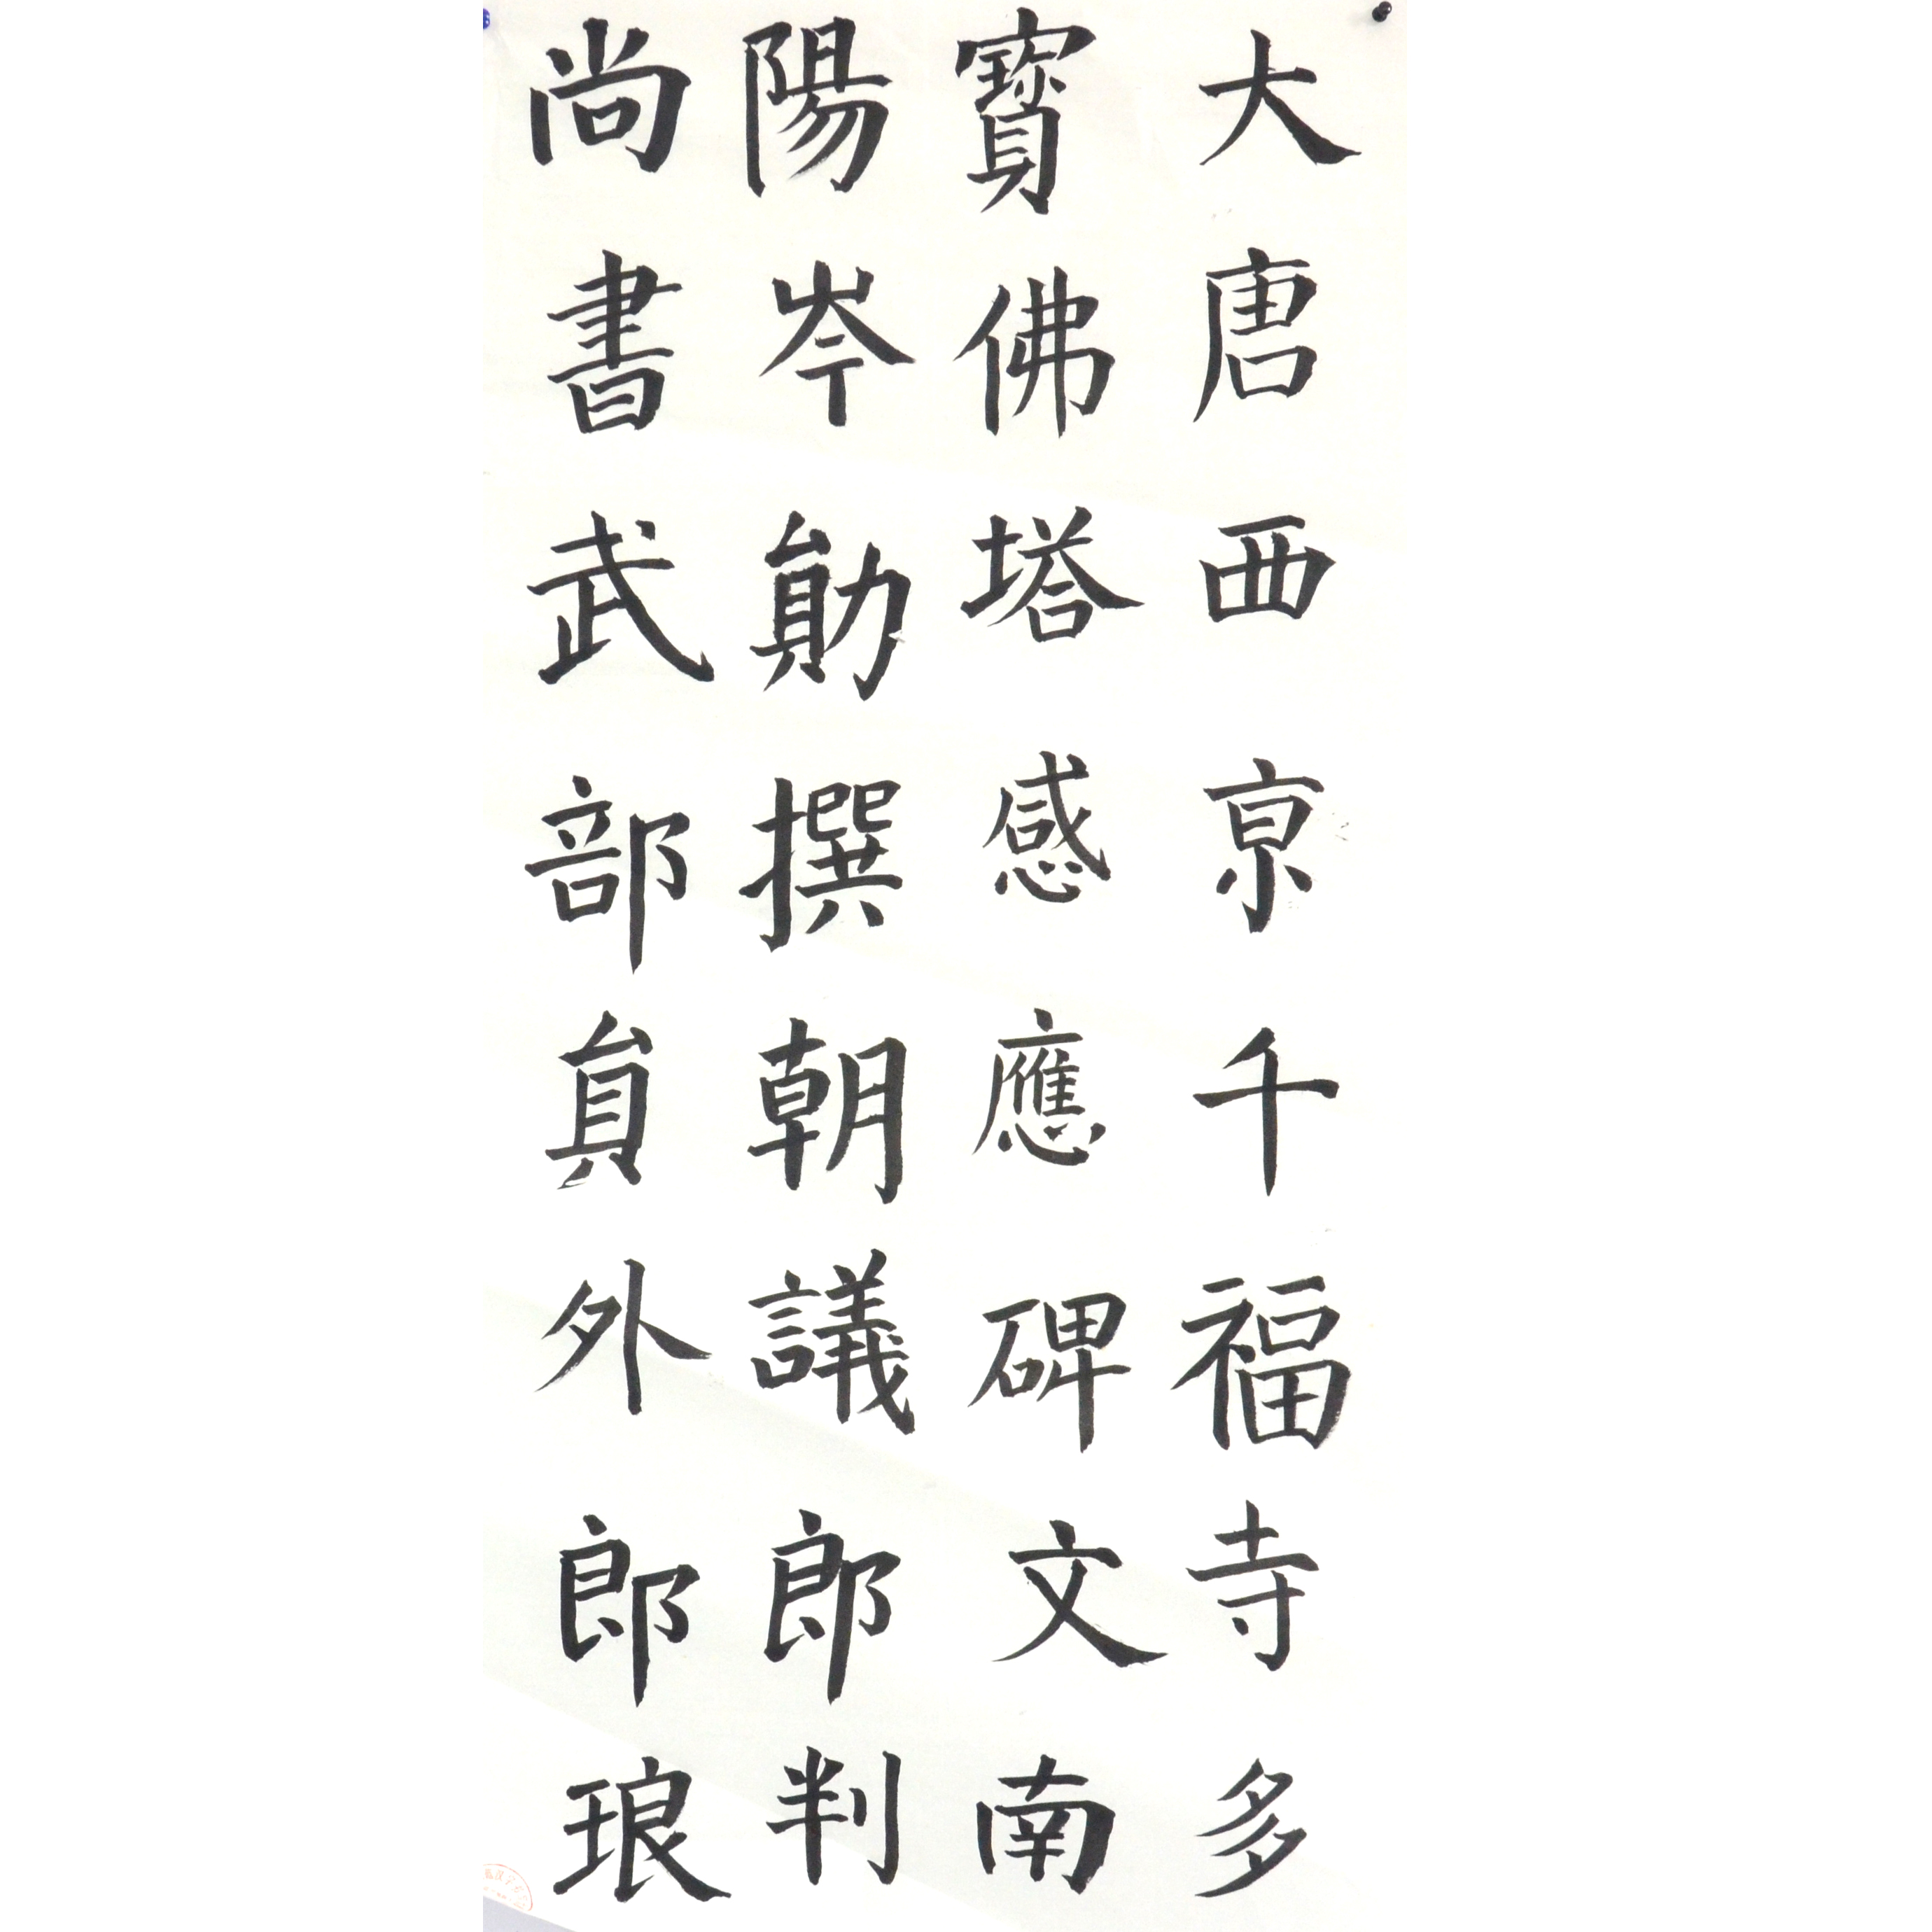 大唐西京千福寺多
寶佛塔感應碑文南
陽岑勛撰朝議郎判
尚書武部員外郎琅